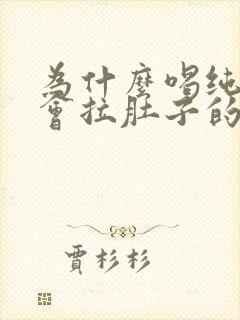 为什麼喝纯
會拉肚子的
賈杉杉